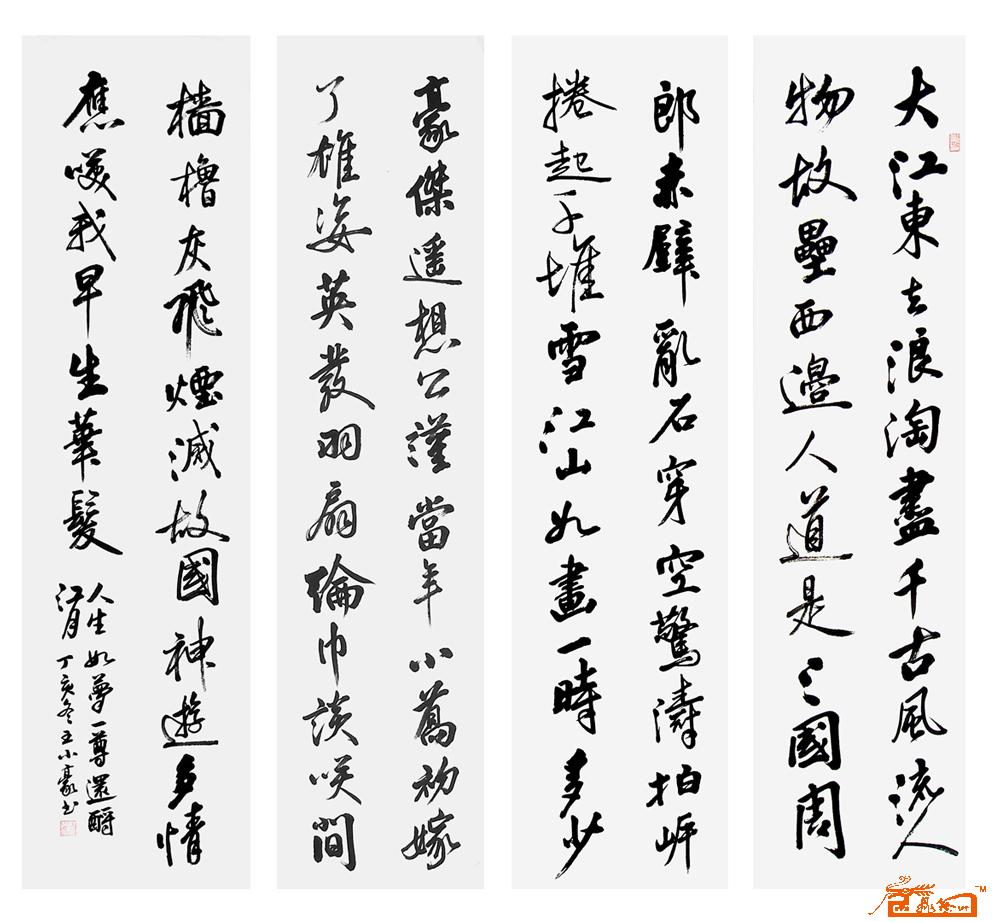 大江東去浪淘盡千古風流人
物故壘西邊人道是三國周
郎赤壁亂石穿空驚濤拍岸
捲起千堆雪江山如畫一時多少
豪傑遥想公瑾當年小喬初嫁
了雄姿英發羽扇綸巾談笑間
檣櫓灰飛煙滅故國神遊多情
應笑我早生華髮
人生如夢一尊還酹
江月
丁亥冬王小豪书